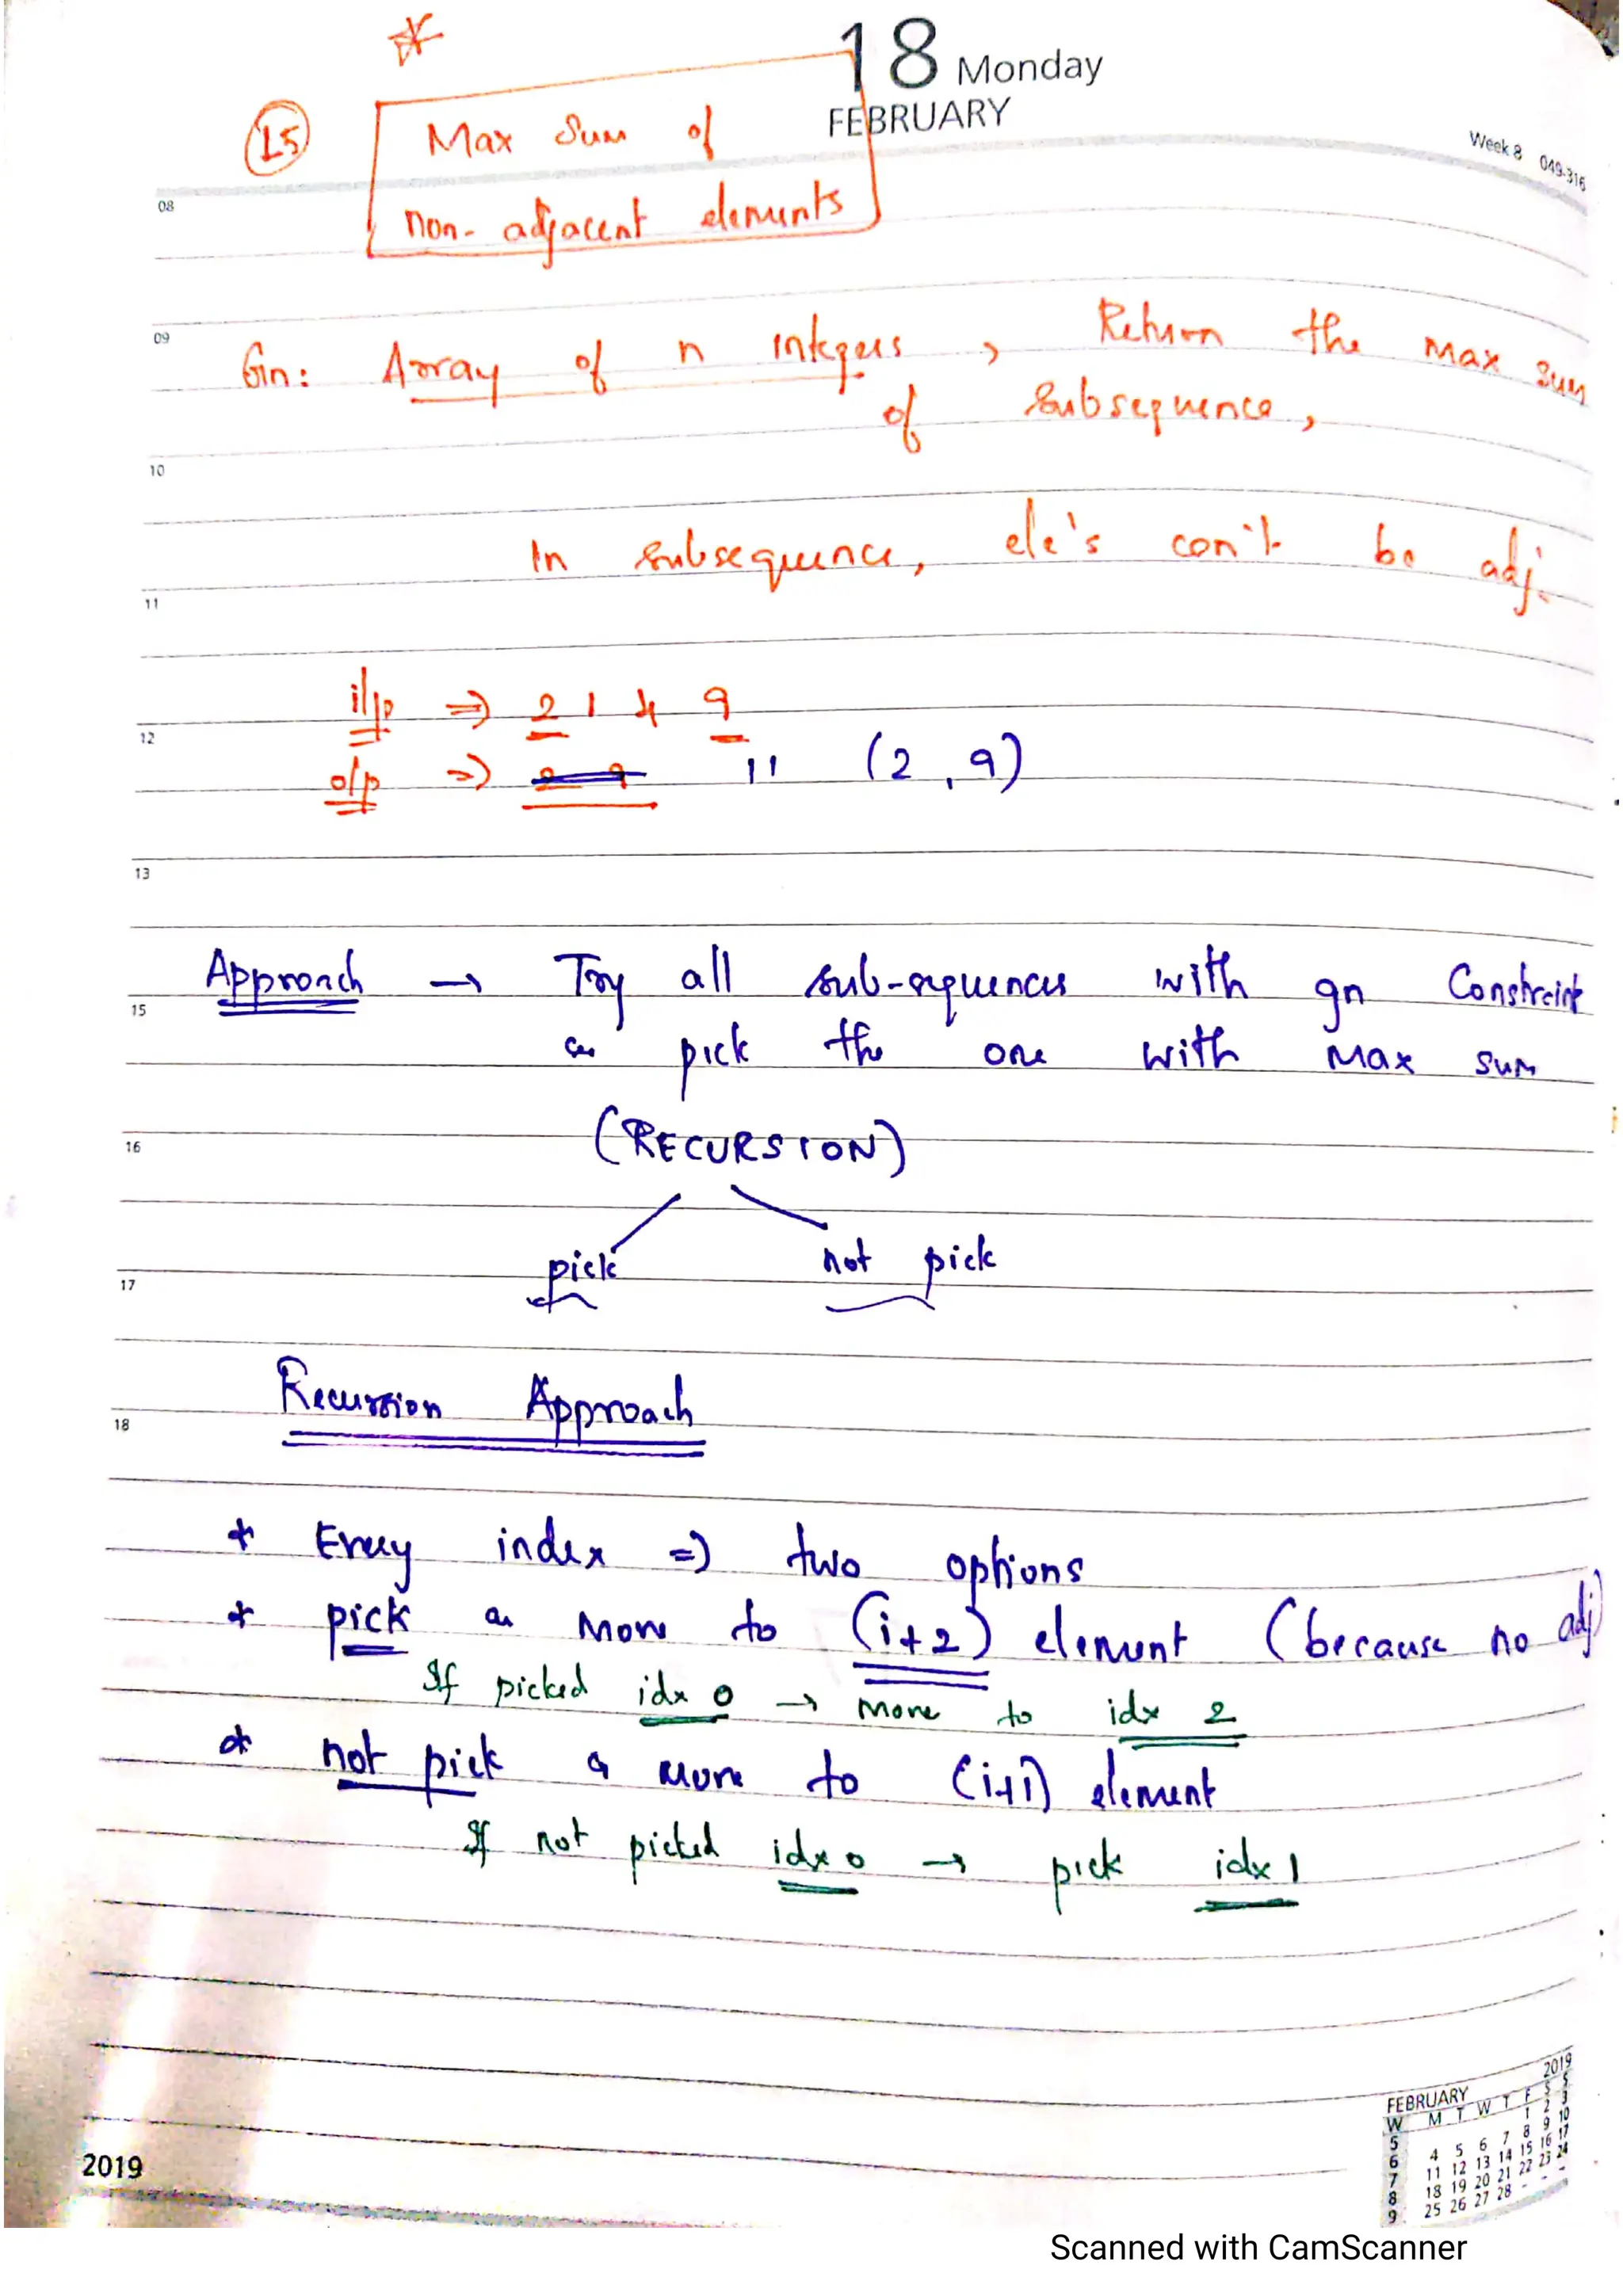 18 Monday
FEBRUARY
Week 8 049-316
15
Max Sum of
non-adjacent elements
08
09
Gn: Array of n integers , Return the max sum
of subsequence,
10
In subsequence, ele's can't be adj.
11
i/p ⇒ 2 1 4 9
12
o/p ⇒ 2 9 11 (2, 9)
13
Approach → Try all sub-sequences with gn Constraint
15
& pick the one with max sum
16
(RECURSION)
pick not pick
17
Recursion Approach
18
* Every index ⇒ two options
* pick & move to (i+2) element (because no adj)
If picked idx 0 → move to idx 2
* not pick & move to (i+1) element
If not picked idx 0 → pick idx 1
2019
FEBRUARY 2019
W M T W T F S S
5 1 2 3
6 4 5 6 7 8 9 10
7 11 12 13 14 15 16 17
8 18 19 20 21 22 23 24
9 25 26 27 28 - - -
Scanned with CamScanner